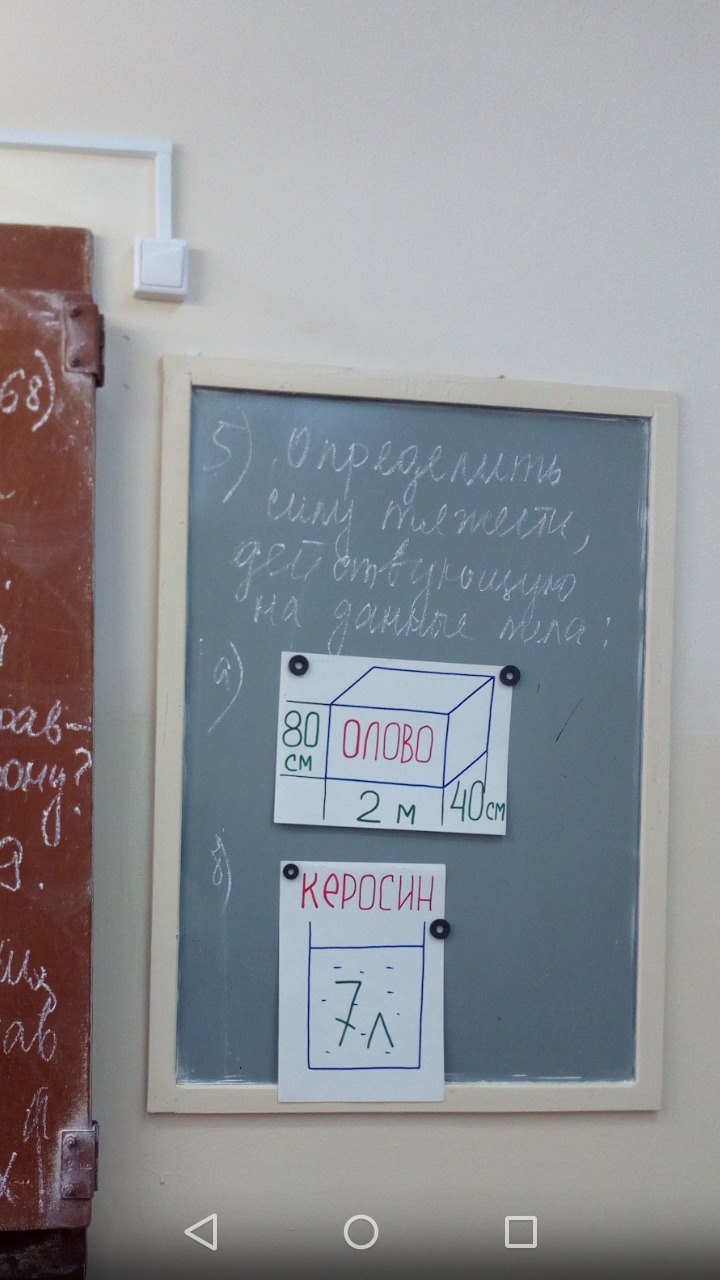 68)
5) Определить
силу тяжести,
действующую
на данные тела:
а)
80
см
ОЛОВО
2 м
40см
б)
КеРОСИН
7 л
рав-
ону?
9.
ав